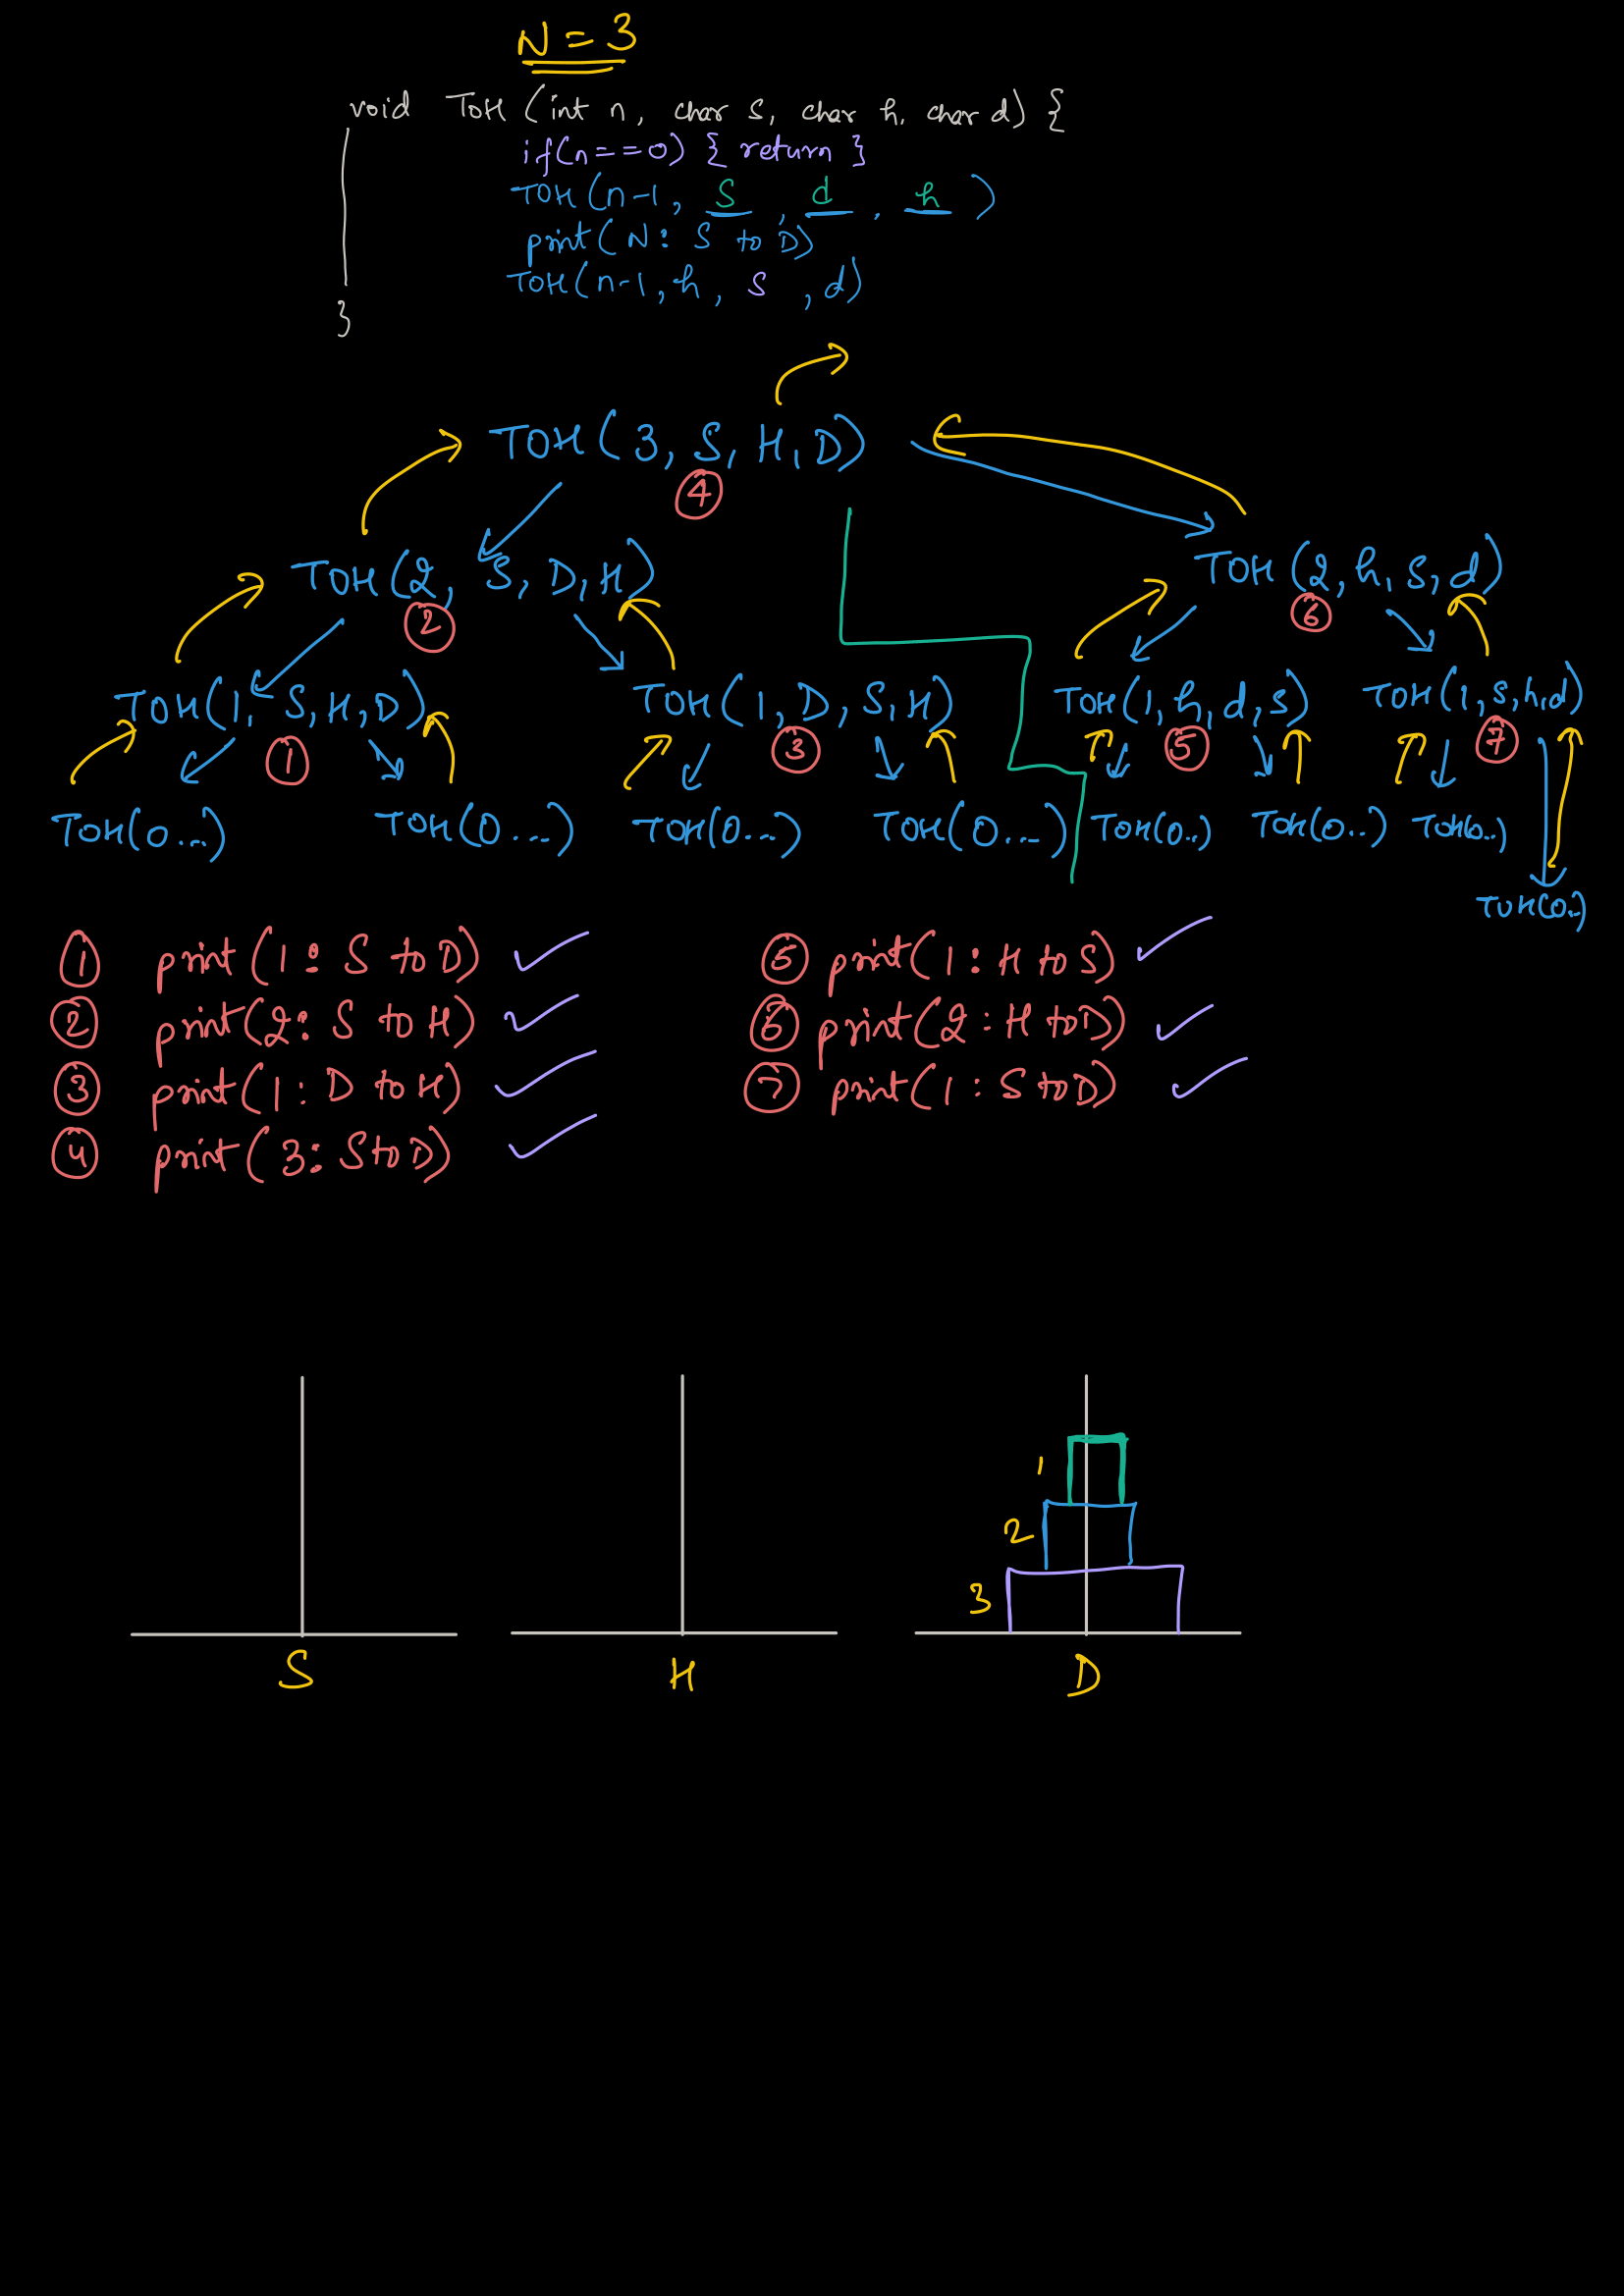 N = 3
void TOH (int n, char s, char h, char d) {
if(n==0) { return }
TOH (n-1, S, d, h)
print( N: S to D)
TOH(n-1, h, s, d)
}
TOH (3, S, H, D)
4
TOH(2, S, D, H)
2
TOH (2, h, s, d)
6
TOH(1, S, H, D)
1
TOH (1, D, S, H)
3
TOH(1, h, d, s)
5
TOH(1, s, h, d)
7
TOH(0...)
TOH(0...)
TOH(0...)
TOH(0...)
TOH(0..)
TOH(0..)
TOH(0..)
TOH(0..)
1 print (1: S to D)
2 print(2: S to H)
3 print(1: D to H)
4 print( 3: S to D)
5 print(1: H to S)
6 print(2: H to D)
7 print(1: S to D)
1
2
3
S
H
D